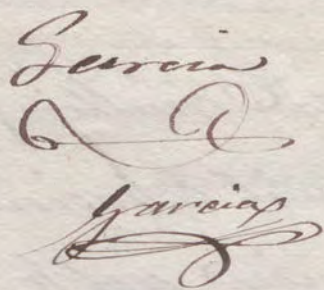 Garcia
Garcia